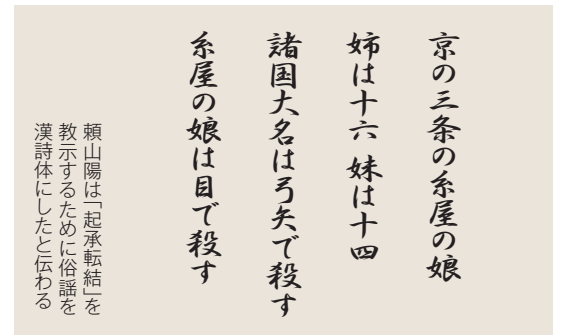 京の三条の糸屋の娘
姉は十六 妹は十四
諸国大名は弓矢で殺す
糸屋の娘は目で殺す
頼山陽は「起承転結」を
教示するために俗謡を
漢詩体にしたと伝わる